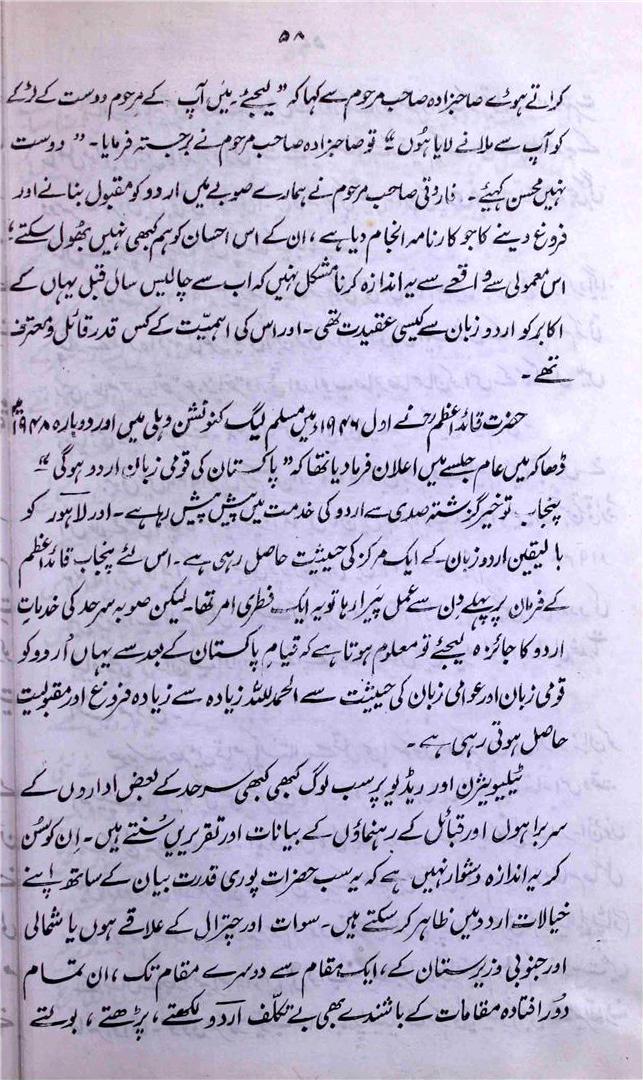 ۵۸
کراتے ہوئے صاحبزادہ صاحب مرحوم سے کہا کہ ” لیجئے۔ میں آپ کے مرحوم دوست کے لڑکے
کو آپ سے ملانے لایا ہُوں “ تو صاحبزادہ صاحب مرحوم نے برجستہ فرمایا۔ ” دوست
نہیں محسن کہیئے۔ فاروقی صاحب مرحوم نے ہمارے صوبے میں اردو کو مقبول بنانے اور
فروغ دینے کا جو کارنامہ انجام دیا ہے ، ان کے اس احسان کو ہم کبھی نہیں بھُول سکتے “
اس معمولی سے واقعے سے یہ اندازہ کرنا مشکل نہیں کہ اب سے چالیس سال قبل یہاں کے
اکابر کو اردو زبان سے کیسی عقیدت تھی۔ اور اس کی اہمیّت کے کس قدر قائل و معترف
تھے۔
حضرت قائد اعظمؒ نے اول ۱۹۴۶ء میں مسلم لیگ کنونشن دہلی میں اور دوبارہ ۱۹۴۸ء میں
ڈھاکہ میں عام جلسے میں اعلان فرما دیا تھا کہ ” پاکستان کی قومی زبان اردو ہوگی “
پنجاب تو خیر گزشتہ صدی سے اردو کی خدمت میں پیش پیش رہا ہے۔ اور لاہور کو
بالیقین اردو زبان کے ایک مرکز کی حیثیت حاصل رہی ہے۔ اس لئے پنجاب قائد اعظم
کے فرمان پر پہلے دن سے عمل پیرا رہا تو یہ ایک فطری امر تھا۔ لیکن صوبہ سرحد کی خدماتِ
اردو کا جائزہ لیجئے تو معلوم ہوتا ہے کہ قیامِ پاکستان کے بعد سے یہاں اُردو کو
قومی زبان اور عوامی زبان کی حیثیت سے الحمد للہ زیادہ سے زیادہ فروغ اور مقبولیت
حاصل ہوتی رہی ہے۔
ٹیلیویژن اور ریڈیو پر سب لوگ کبھی کبھی سرحد کے بعض اداروں کے
سربراہوں اور قبائل کے رہنماؤں کے بیانات اور تقریریں سُنتے ہیں۔ اِن کو سُن
کر یہ اندازہ دشوار نہیں ہے کہ یہ سب حضرات پوری قدرت بیان کے ساتھ اپنے
خیالات اردو میں ظاہر کر سکتے ہیں۔ سوات اور چترال کے علاقے ہوں یا شمالی
اور جنوبی وزیرستان کے ، ایک مقام سے دوسرے مقام تک ، ان تمام
دور افتادہ مقامات کے باشندے بھی بے تکلّف اردو لکھتے ، پڑھتے ، بولتے